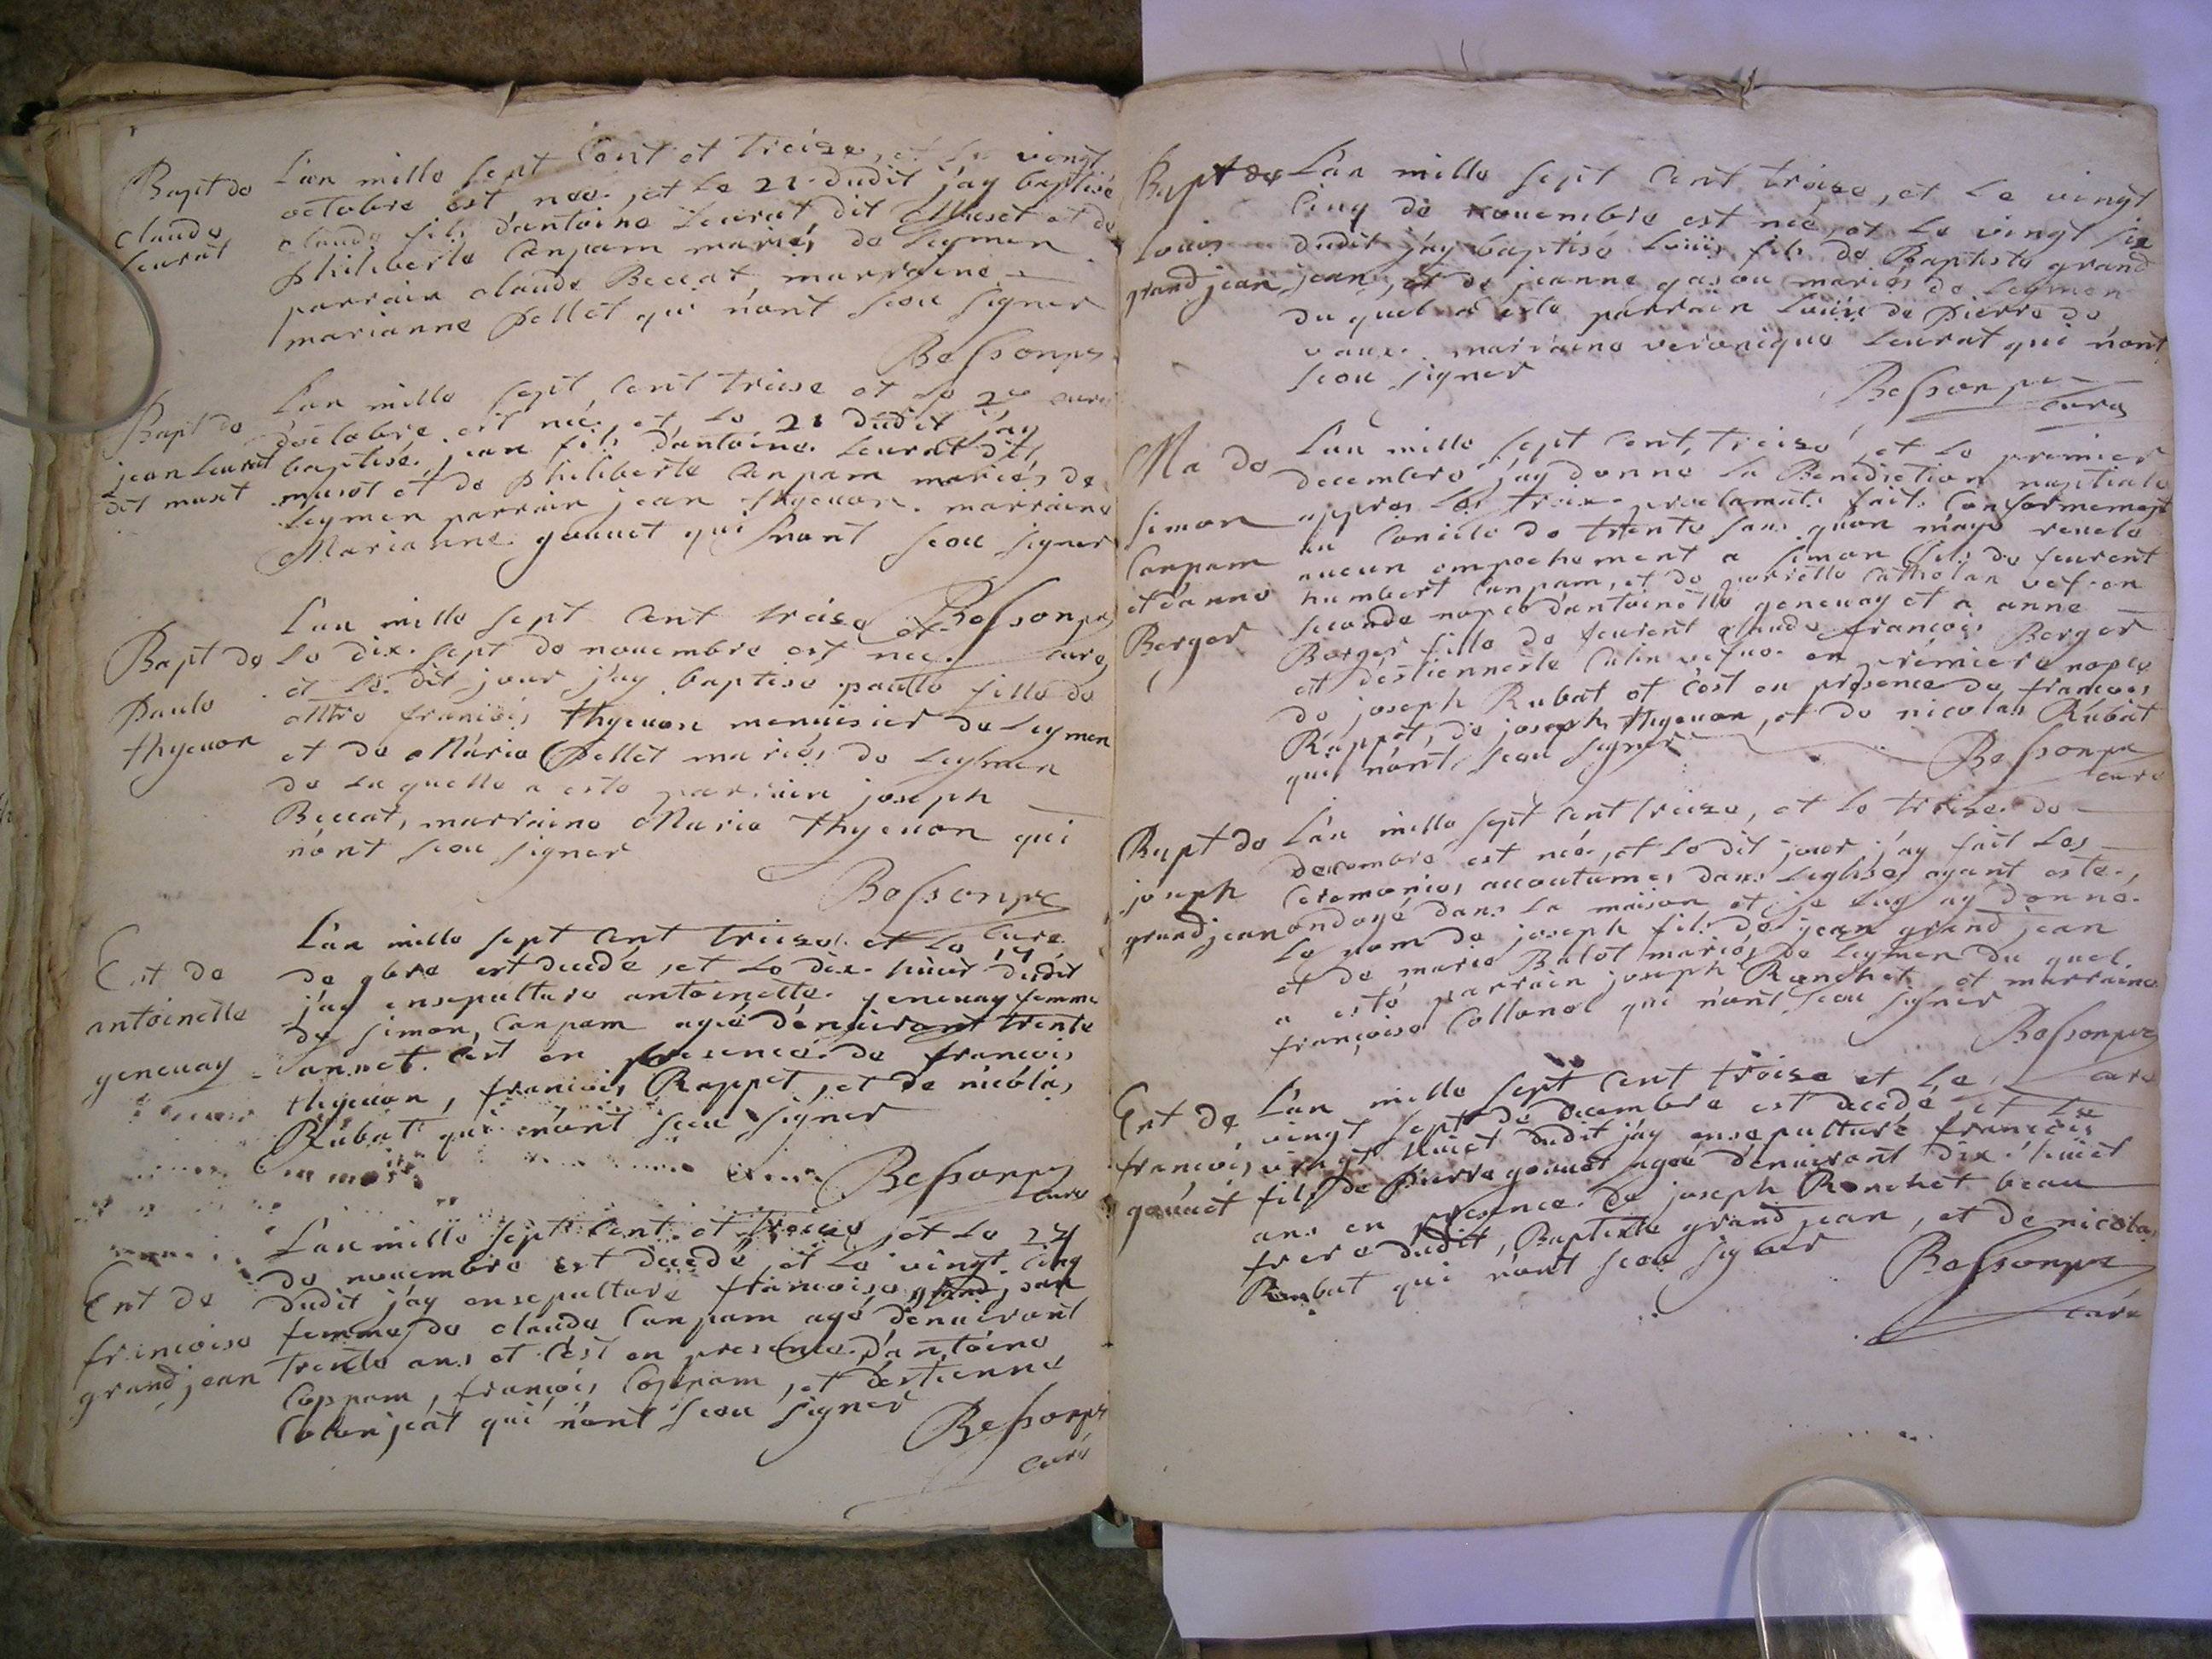 Bapt de
claude
Leurat
L'an mille sept Cent et treize, et le vingt
octobre est nee, et le 21 dudit j'ay baptisé
claude fils d'antoine Leurat dit Muset et de
philiberte Canpam mariés de Leymen
parrain claude Beccat, marraine
marianne pellet qui n'ont scou signer
Bessonps
curé
Bapt de
jean Leurat
dit muset
L'an mille sept Cent treise et le 20
d'octobre est né, et le 21 dudit j'ay
baptisé jean fils d'antoine Leurat dit
muset et de philiberte Canpam mariés de
Leymen parrain jean thyeuon marraine
Marianne gouuet qui n'ont scou signer
Bessonps
curé
Bapt de
paule
thyeuon
L'an mille sept Cent treise et
le dix sept de nouembre est nee
et le dit jour j'ay baptise paulle fille de
Mtre francois thyeuon menuisier de Leymen
et de Marie Pellet mariés de Leymen
de laquelle a este parrain joseph
Beccat, marraine Marie thyeuon qui
n'ont scou signer
Bessonps
curé
Ent de
antoinette
geneuay
L'an mille sept Cent treize et le 17
de 9bre est decedé, et le dix huict dudit
j'ay ensepulture antoinette geneuay femme
de Simon Canpam agée d'enuiront trente
annet c'est en presence de francois
thyeuon, francois Rappet, et de nicolas
Rubat qui n'ont scou signer
Bessonps
curé
Ent de
francoise
grand jean
L'an mille sept Cent et treize et le 24
de nouembre est decedé et le vingt cinq
dudit j'ay ensepulture francoise grand jean
femme de claude Canpam agé d'enuiront
trente ans et c'est en presence d'antoine
Coppam, francois Coppam, et d'estienne
Colonjeat qui n'ont scou signer
Bessonps
curé
Bapt de
Louis
grand jean
L'an mille sept Cent treise, et le vingt
Cinq de nouembre est né, et le vingt six
dudit j'ay baptisé Louis fils de Baptiste grand
jean, et de jeanne gasou mariés de Leymen
du quel a este parrain Louis de pierre de
vaux marraine veronique Leurat qui n'ont
scou signer
Bessonps
curé
Ma de
simon
Canpam
et d'anne
Berger
L'an mille sept Cent, treize, et le premier
decembre j'ay donne la Benediction nuptiale
appres les trois proclamats fait Conformement
au Concile de trente sans qu'on m'aye reuele
aucun empechement a Simon fils de feurent
humbert Canpam, et de pierrette Catholan vef en
seconde nopce d'antoinette geneuay et a anne
Berger fille de feurent claude francois Berger
et d'estiennette Culin vefue en premiere nopce
de joseph Rubat et c'est en presence de francois
Rappet, de joseph thyeuon, et de nicolas Rubat
qui n'ont scou signer
Bessonps
curé
Bapt de
joseph
grand jean
L'an mille sept Cent treize, et le treize de
decembre est né, et le dit jour j'ay fait les
Ceremonies accoutumes dans L'eglise, ayant este
ondoyé dans la maison et je luy ay donné
le nom de joseph fils de jean grand jean
et de marie Balot mariés de Leymen du quel
a esté parrain joseph Ronchet et marraine
françoise Collonel qui n'ont scou signer
Bessonps
curé
Ent de
francois
gouuet
L'an mille sept Cent troise et le
vingt sept de decembre est decedé, et le
vingt huict dudit j'ay ensepulturé francois
fils de pierre gouuet agée d'enuiront dix huict
ans en presence de joseph Ronchet beau
frere dudit, Baptiste grand jean, et de nicolas
Rubat qui n'ont scou signer
Bessonps
curé